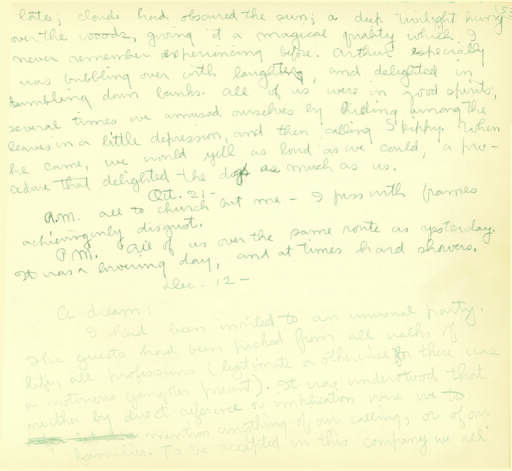 late; clouds had obscured the sun; a deep twilight hung
over the woods, giving it a magical quality which I
never remember experiencing before. Arthur especially
was bubbling over with laughter, and delighted in
tumbling down banks. All of us were in good spirits,
several times we amused ourselves by hiding among the
leaves in a little depression, and then calling Skippy. When
he came, we would yell as loud as we could, a proce-
dure that delighted the dog as much as us.
Oct. 21 -
A.M. all to church but me - I fuss with frames
achieving only disgust.
P.M. All of us over the same route as yesterday.
It was a lowering day, and at times hard showers.
Dec. 12 -
A dream:
I had been invited to an unusual party.
The guests had been picked from all walks of
life, all professions (legitimate or otherwise for there was
a notorious gangster present). It was understood that
neither by direct reference or implication were we to
mention anything of our callings, or of our
families. To be accepted in this company we all